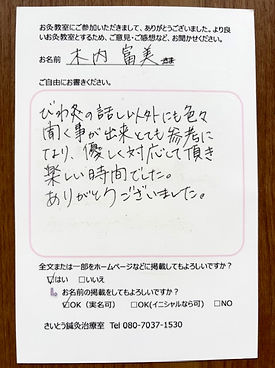 お灸教室にご参加いただきまして、ありがとうございました。より良
いお灸教室とするため、ご意見・ご感想など、お聞かせください。
お名前 木内 富美 さま
ご自由にお書きください。
びわ灸の話しい以外にも色々
聞く事が出来とても参考に
なり、優しく対応して頂き
楽しい時間でした。
ありがとうございました。
全文または一部をホームページなどに掲載してもよろしいですか？
☑はい □いいえ
お名前の掲載をしてもよろしいですか？
☑OK（実名可） □OK(イニシャルなら可) □NO
さいとう鍼灸治療室 Tel 080-7037-1530